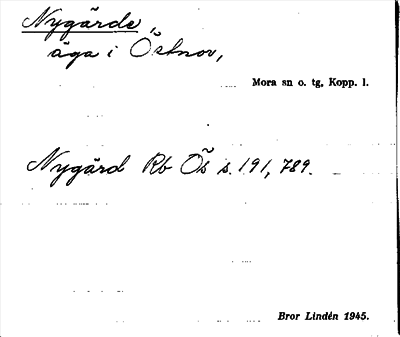 Nygärde,
äga i Östnor,
Mora sn o. tg, Kopp. l.
Nygärd Rb Ös s. 191, 789.
Bror Lindén 1945.